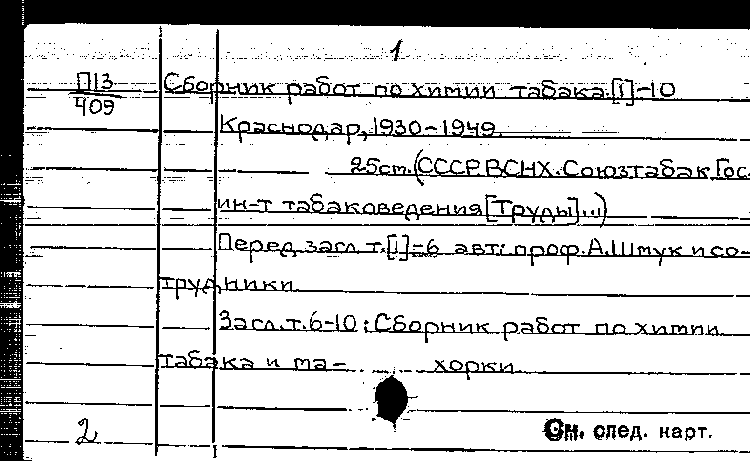 1
П13
409
Сборник работ по химии табака.[1]-10
Краснодар, 1930-1949.
25см. (СССР. ВСНХ. Союзтабак. Гос.
ин-т табаковедения [Труды]...)
Перед загл. т.[1]-6 авт: проф. А. Шмук и со-
трудники.
Загл. т. 6-10: Сборник работ по химии
табака и ма- хорки
2
См. след. карт.